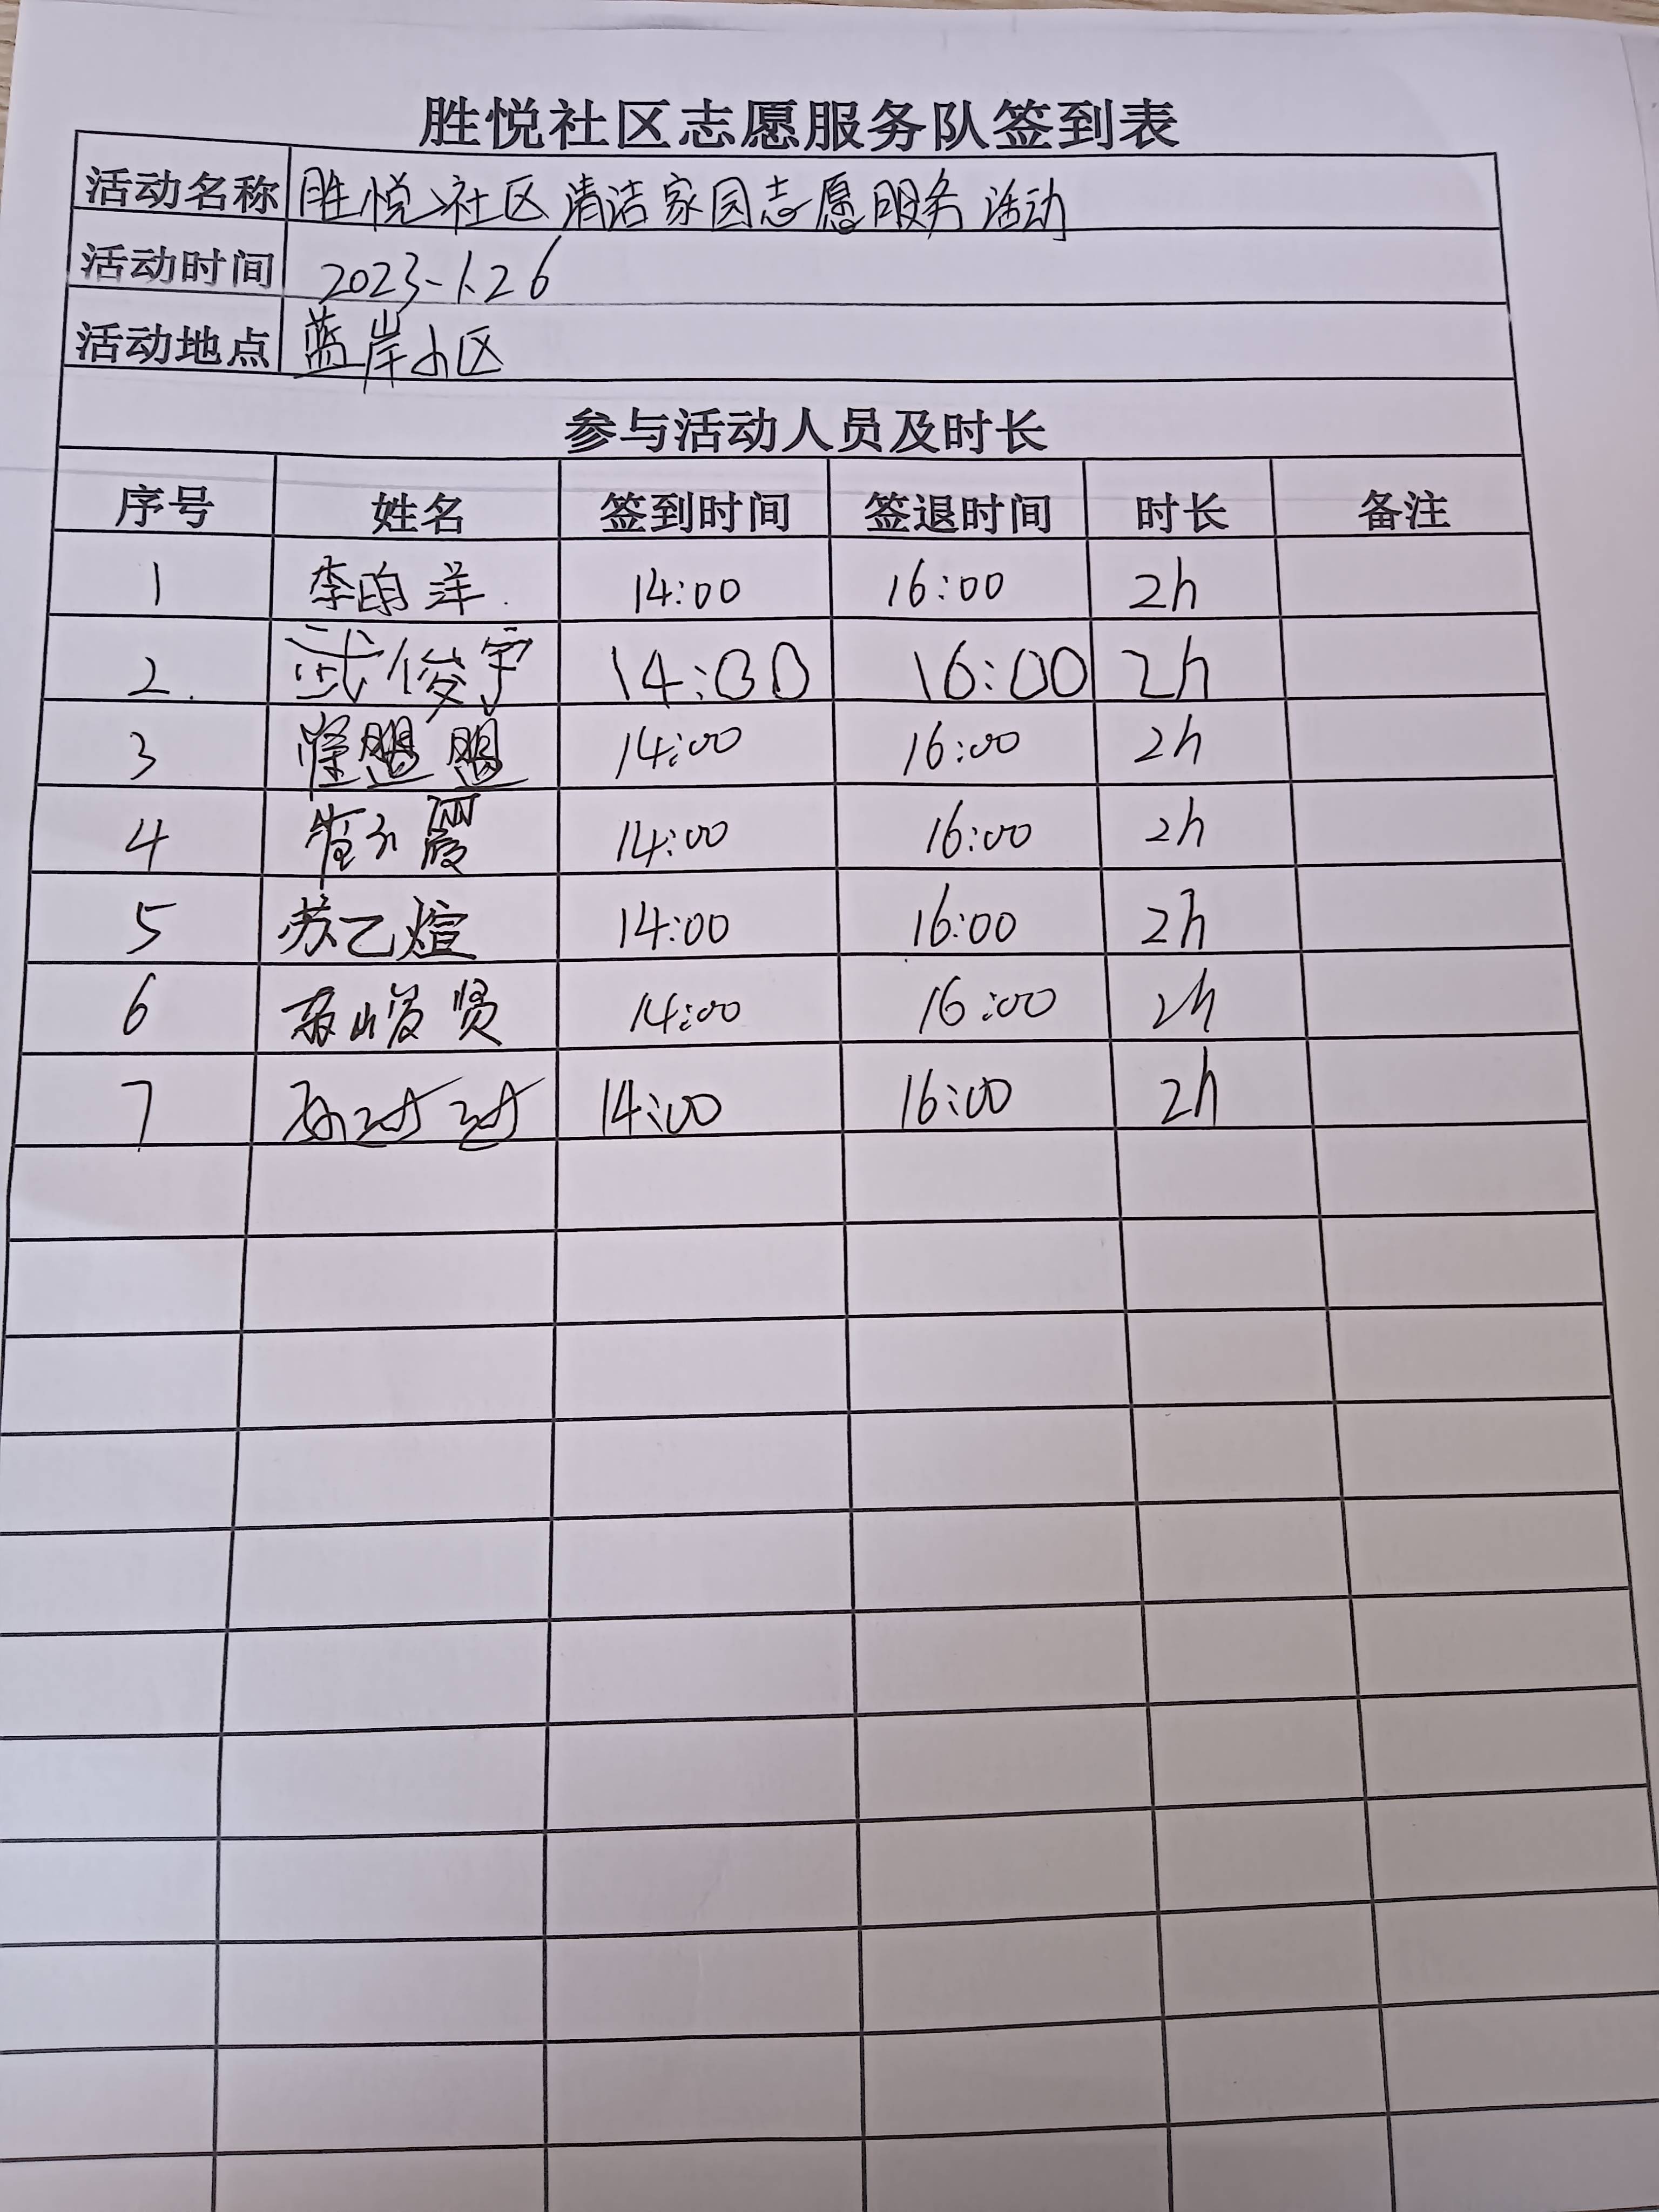 胜悦社区志愿服务队签到表
活动名称 胜悦社区清洁家园志愿服务活动
活动时间 2023-1.26
活动地点 蓝岸小区
参与活动人员及时长
序号 姓名 签到时间 签退时间 时长 备注
1 李明洋 14:00 16:00 2h
2. 武俊宇 14:00 16:00 2h
3 14:00 16:00 2h
4 14:00 16:00 2h
5 苏乙煊 14:00 16:00 2h
6 14:00 16:00 2h
7 14:00 16:00 2h